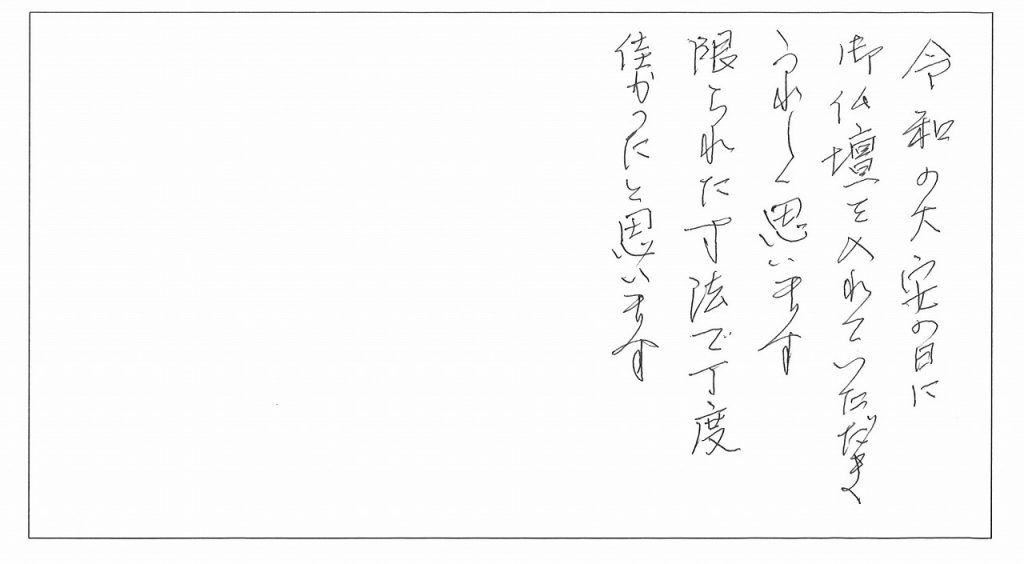 令和の大安の日に
御仏壇を入れていただきく
うれしく思います
限られた寸法で丁度
佳かったと思います